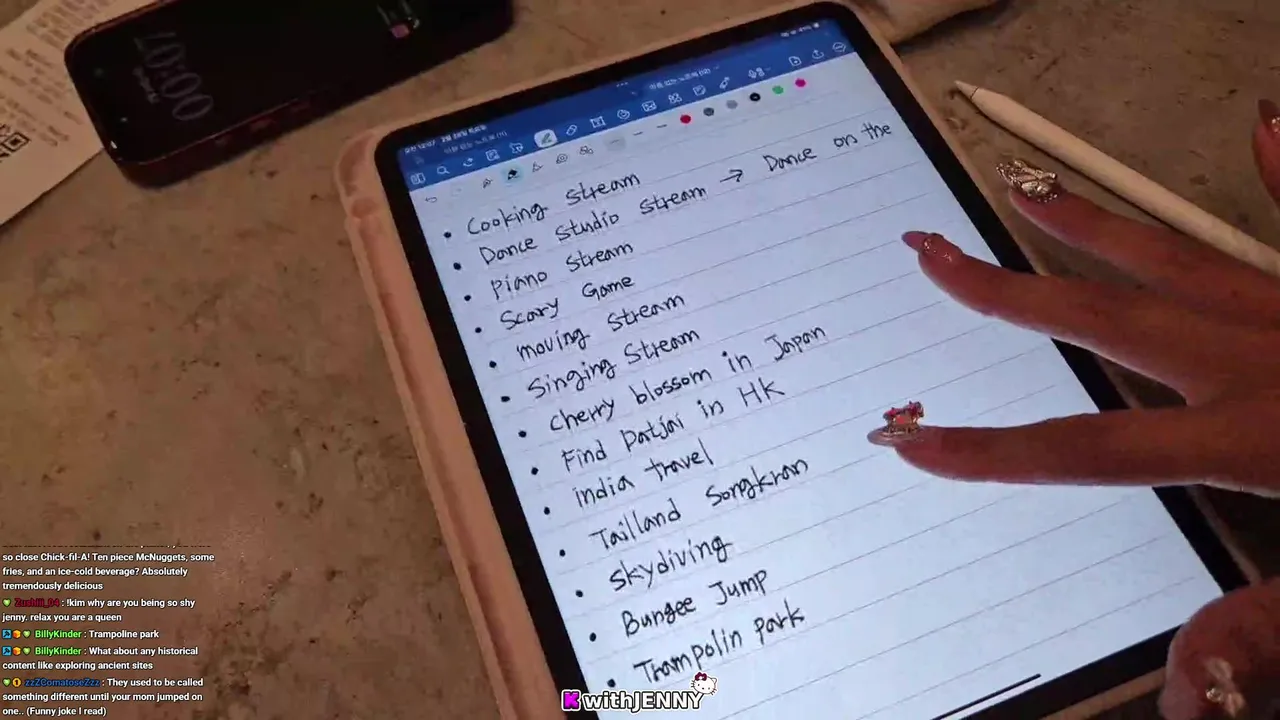 00:07
• Cooking stream
• Dance studio stream → Dance on the
• Piano stream
• Scary Game
• moving stream
• Singing Stream
• cherry blossom in Japan
• Find Patjai in HK
• india travel
• Tailland Songkran
• skydiving
• Bungee Jump
• Trampolin park
so close Chick-fil-A! Ten piece McNuggets, some
fries, and an ice-cold beverage? Absolutely
tremendously delicious
: !kim why are you being so shy
jenny. relax you are a queen
BillyKinder : Trampoline park
BillyKinder : What about any historical
content like exploring ancient sites
zzZComatoseZzz : They used to be called
something different until your mom jumped on
one.. (Funny joke I read)
K withJENNY